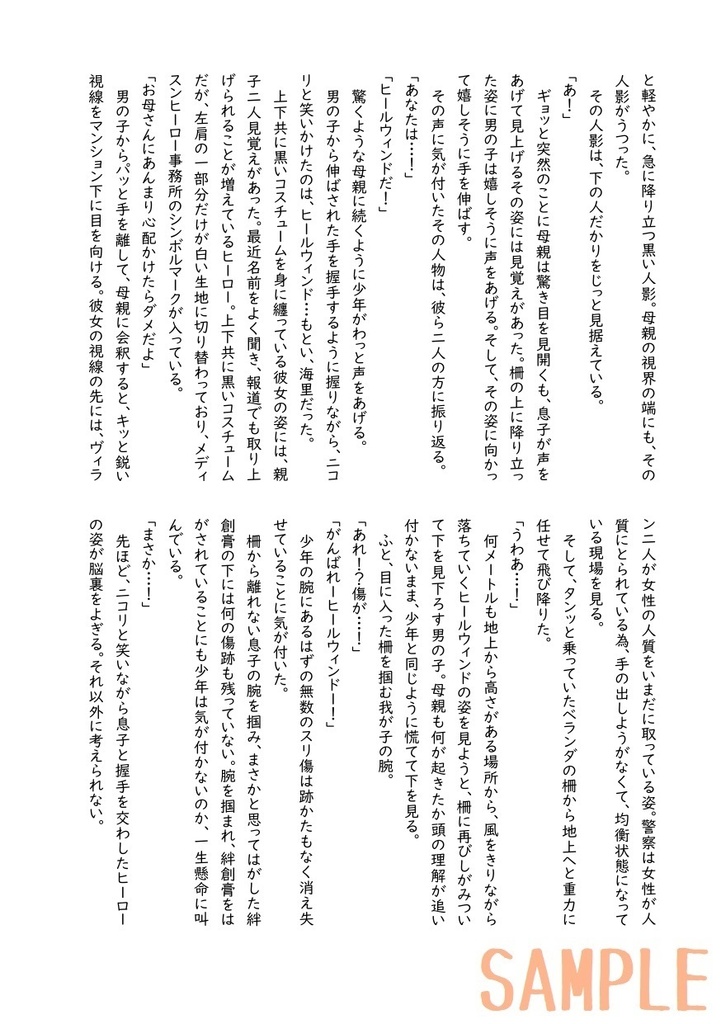 と軽やかに、急に降り立つ黒い人影。母親の視界の端にも、その
人影がうつった。
その人影は、下の人だかりをじっと見据えている。
「あ！」
ギョッと突然のことに母親は驚き目を見開くも、息子が声を
あげて見上げるその姿には見覚えがあった。柵の上に降り立っ
た姿に男の子は嬉しそうに声をあげる。そして、その姿に向かっ
て嬉しそうに手を伸ばす。
その声に気が付いたその人物は、彼ら二人の方に振り返る。
「あなたは…！」
「ヒールウィンドだ！」
驚くような母親に続くように少年がわっと声をあげる。
男の子から伸ばされた手を握手するように握りながら、ニコ
リと笑いかけたのは、ヒールウィンド…もとい、海里だった。
上下共に黒いコスチュームを身に纏っている彼女の姿には、親
子二人見覚えがあった。最近名前をよく聞き、報道でも取り上
げられることが増えているヒーロー。上下共に黒いコスチューム
だが、左肩の一部分だけが白い生地に切り替わっており、メディ
スンヒーロー事務所のシンボルマークが入っている。
「お母さんにあんまり心配かけたらダメだよ」
男の子からパッと手を離して、母親に会釈すると、キッと鋭い
視線をマンション下に目を向ける。彼女の視線の先には、ヴィラ
ン二人が女性の人質をいまだに取っている姿。警察は女性が人
質にとられている為、手の出しようがなくて、均衡状態になって
いる現場を見る。
そして、タンッと乗っていたベランダの柵から地上へと重力に
任せて飛び降りた。
「うわあ…！」
何メートルも地上から高さがある場所から、風をきりながら
落ちていくヒールウィンドの姿を見ようと、柵に再びしがみつい
て下を見下ろす男の子。母親も何が起きたか頭の理解が追い
付かないまま、少年と同じように慌てて下を見る。
ふと、目に入った柵を掴む我が子の腕。
「あれ！？傷が…！」
「がんばれーヒールウィンドー！」
少年の腕にあるはずの無数のスリ傷は跡かたもなく消え失
せていることに気が付いた。
柵から離れない息子の腕を掴み、まさかと思ってはがした絆
創膏の下には何の傷跡も残っていない。腕を掴まれ、絆創膏をは
がされていることにも少年は気が付かないのか、一生懸命に叫
んでいる。
「まさか…！」
先ほど、ニコリと笑いながら息子と握手を交わしたヒーロー
の姿が脳裏をよぎる。それ以外に考えられない。
SAMPLE